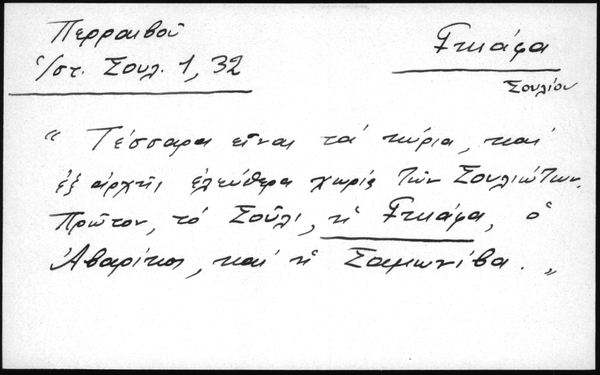 Περραιβοῦ
Ἱστ. Σουλ. 1, 32
Γκιάφα
Σουλίου
" Τέσσαρα εἶναι τά κύρια, καί
ἐξ ἀρχῆς ἐλεύθερα χωρία τῶν Σουλιώτων.
Πρῶτον, τό Σοῦλι, ἡ Γκιάφα, ὁ
Ἀβαρίκος, καί ἡ Σαμωνίβα. "